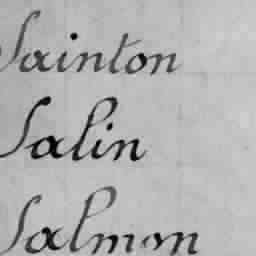 Sainton
Salin
Salmon